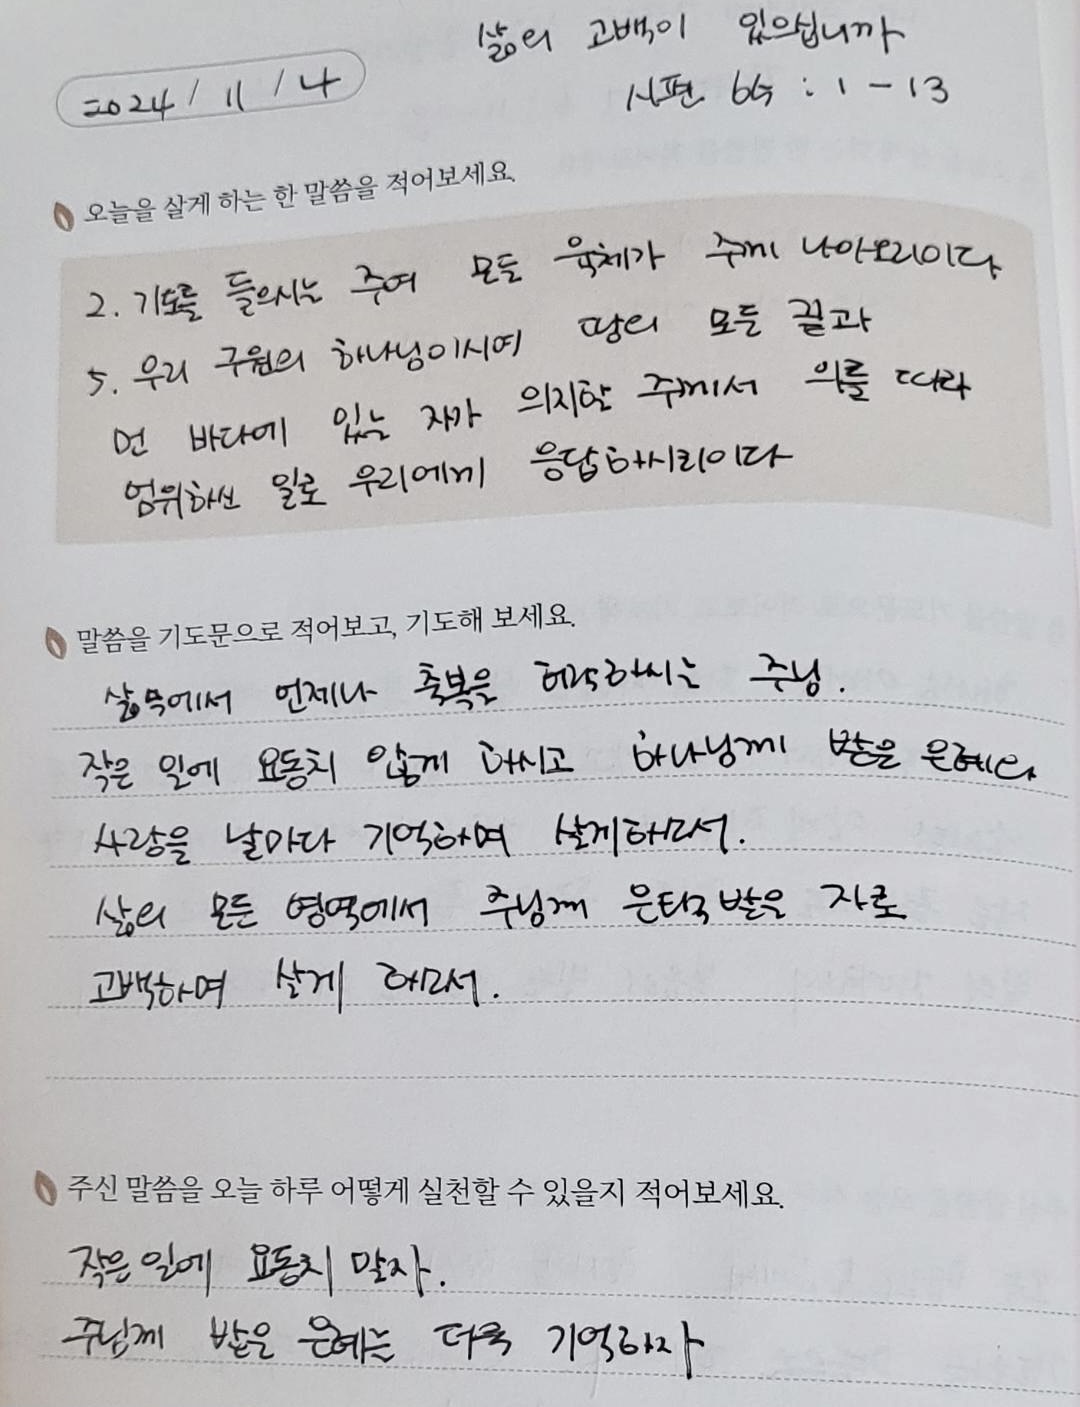 삶의 고백이 있으십니까
2024 / 11 / 4
시편 65 : 1 - 13
오늘을 살게 하는 한 말씀을 적어보세요.
2. 기도를 들으시는 주여 모든 육체가 주께 나아오리이다
5. 우리 구원의 하나님이시여 땅의 모든 끝과
먼 바다에 있는 자가 의지할 주께서 의를 따라
엄위하신 일로 우리에게 응답하시리이다
말씀을 기도문으로 적어보고, 기도해 보세요.
삶속에서 언제나 축복을 허락하시는 주님.
작은 일에 요동치 않게 하시고 하나님께 받은 은혜와
사랑을 날마다 기억하며 살게하소서.
삶의 모든 영역에서 주님께 은택 받은 자로
고백하며 살게 하소서.
주신 말씀을 오늘 하루 어떻게 실천할 수 있을지 적어보세요.
작은 일에 요동치 말자.
주님께 받은 은혜는 더욱 기억하자